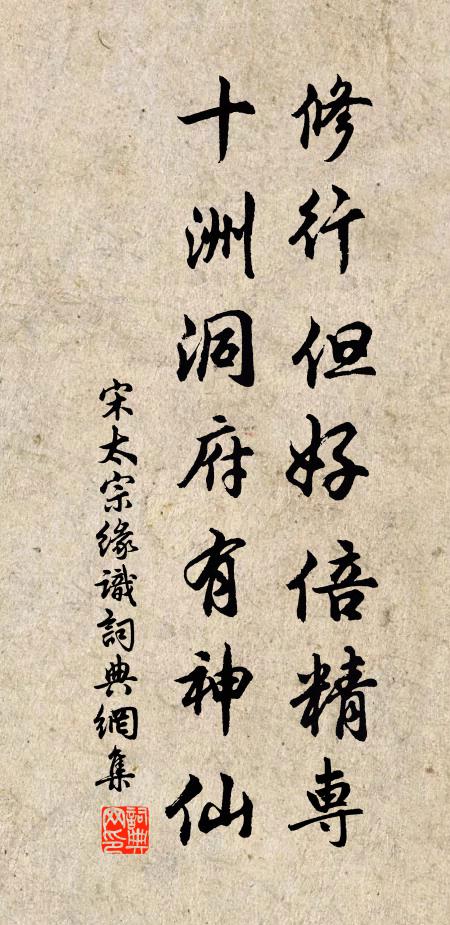 修行但好倍精専
十洲洞府有神仙
宋太宗緣識詞典網集
詞典網印